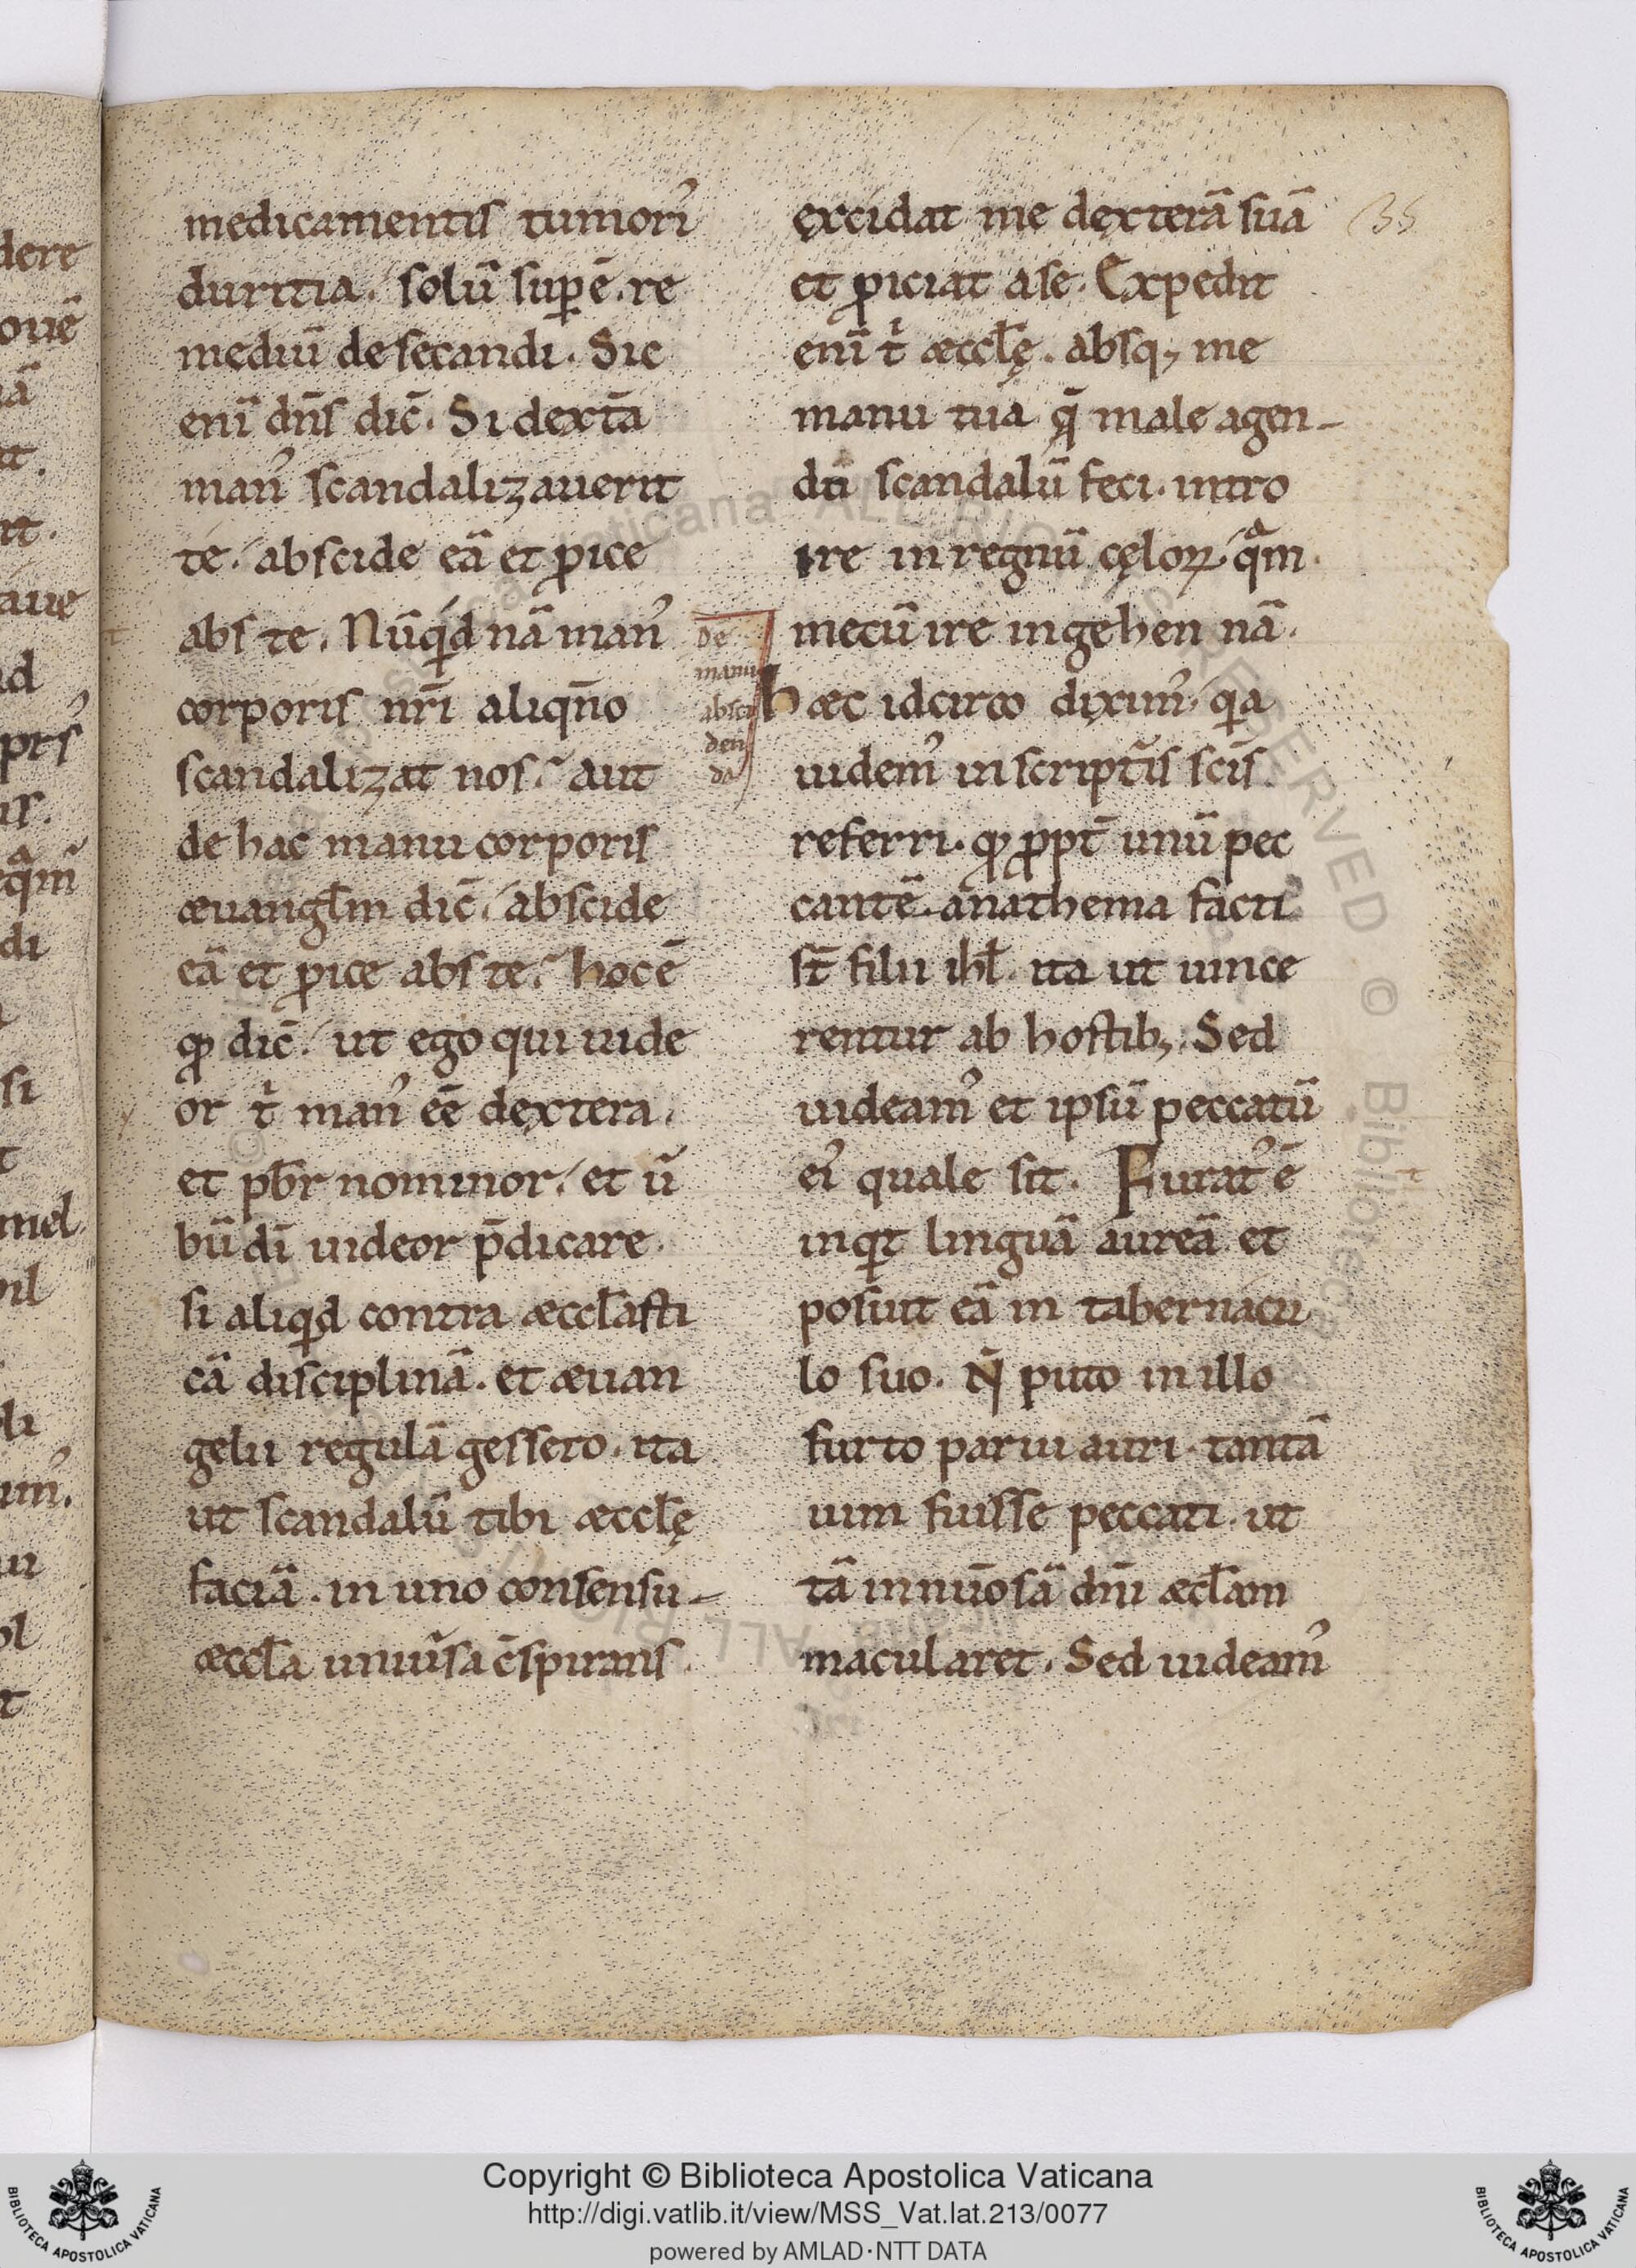 medicamentis tumorꝰ
duritia. solū suꝑē. re
mediū desecandi. Sic
enī dn̄s dic̄. Si dext̄a
manꝰ scandalizauerit
te. abscide eā et ꝓice
abs te. Nūqͥd nā manꝰ
corporis nr̄i aliqn̄o
scandalizat nos. aut
de hac manu corporis
æuangłm dic̄. abscide
eā et ꝓice abs te. hoc ē
qđ dic̄. ut ego qui uide
or tͥ manꝰ eē dextera.
et pbr̄ nominor. et ū
bū dī uideor p̄dicare.
si aliqͥd contra æccłasti
cā disciplinā. et æuan
gelii regulā gessero. ita
ut scandalū tibi æccłę
faciā. in uno consensu
æccła uniūsa c̄spirans
de
manu
absci
den
da
excidat me dexterā suā
et ꝓiciat a se. Expedit
enī tͥ æccłę. absqꝫ me
manu tua q̄ male agen-
dū scandalū feci. intro
ire in regnū cęloꝝ. qͣm
mecū ire in gehennā.
hæc idcirco diximꝰ. qͥa
uidemꝰ in script̄is scīs
referri. qđ ꝓpt̄ unū pec
cantē. anathema facti
st̄ filii iħl. ita ut uince
rentur ab hostibꝫ. Sed
uideamꝰ et ipsū peccatū
eiꝰ quale sit. Furatꝰ ē
inqͥt linguā aureā et
posuit eā in tabernacu
lo suo. N̄ puto in illo
furto parui auri. tantā
uim fuisse peccati. ut
tā innūosā dn̄i æcłam
macularet. Sed uideamꝰ
35
Copyright © Biblioteca Apostolica Vaticana
http://digi.vatlib.it/view/MSS_Vat.lat.213/0077
powered by AMLAD·NTT DATA
BIBLIOTECA APOSTOLICA VATICANA
BIBLIOTECA APOSTOLICA VATICANA